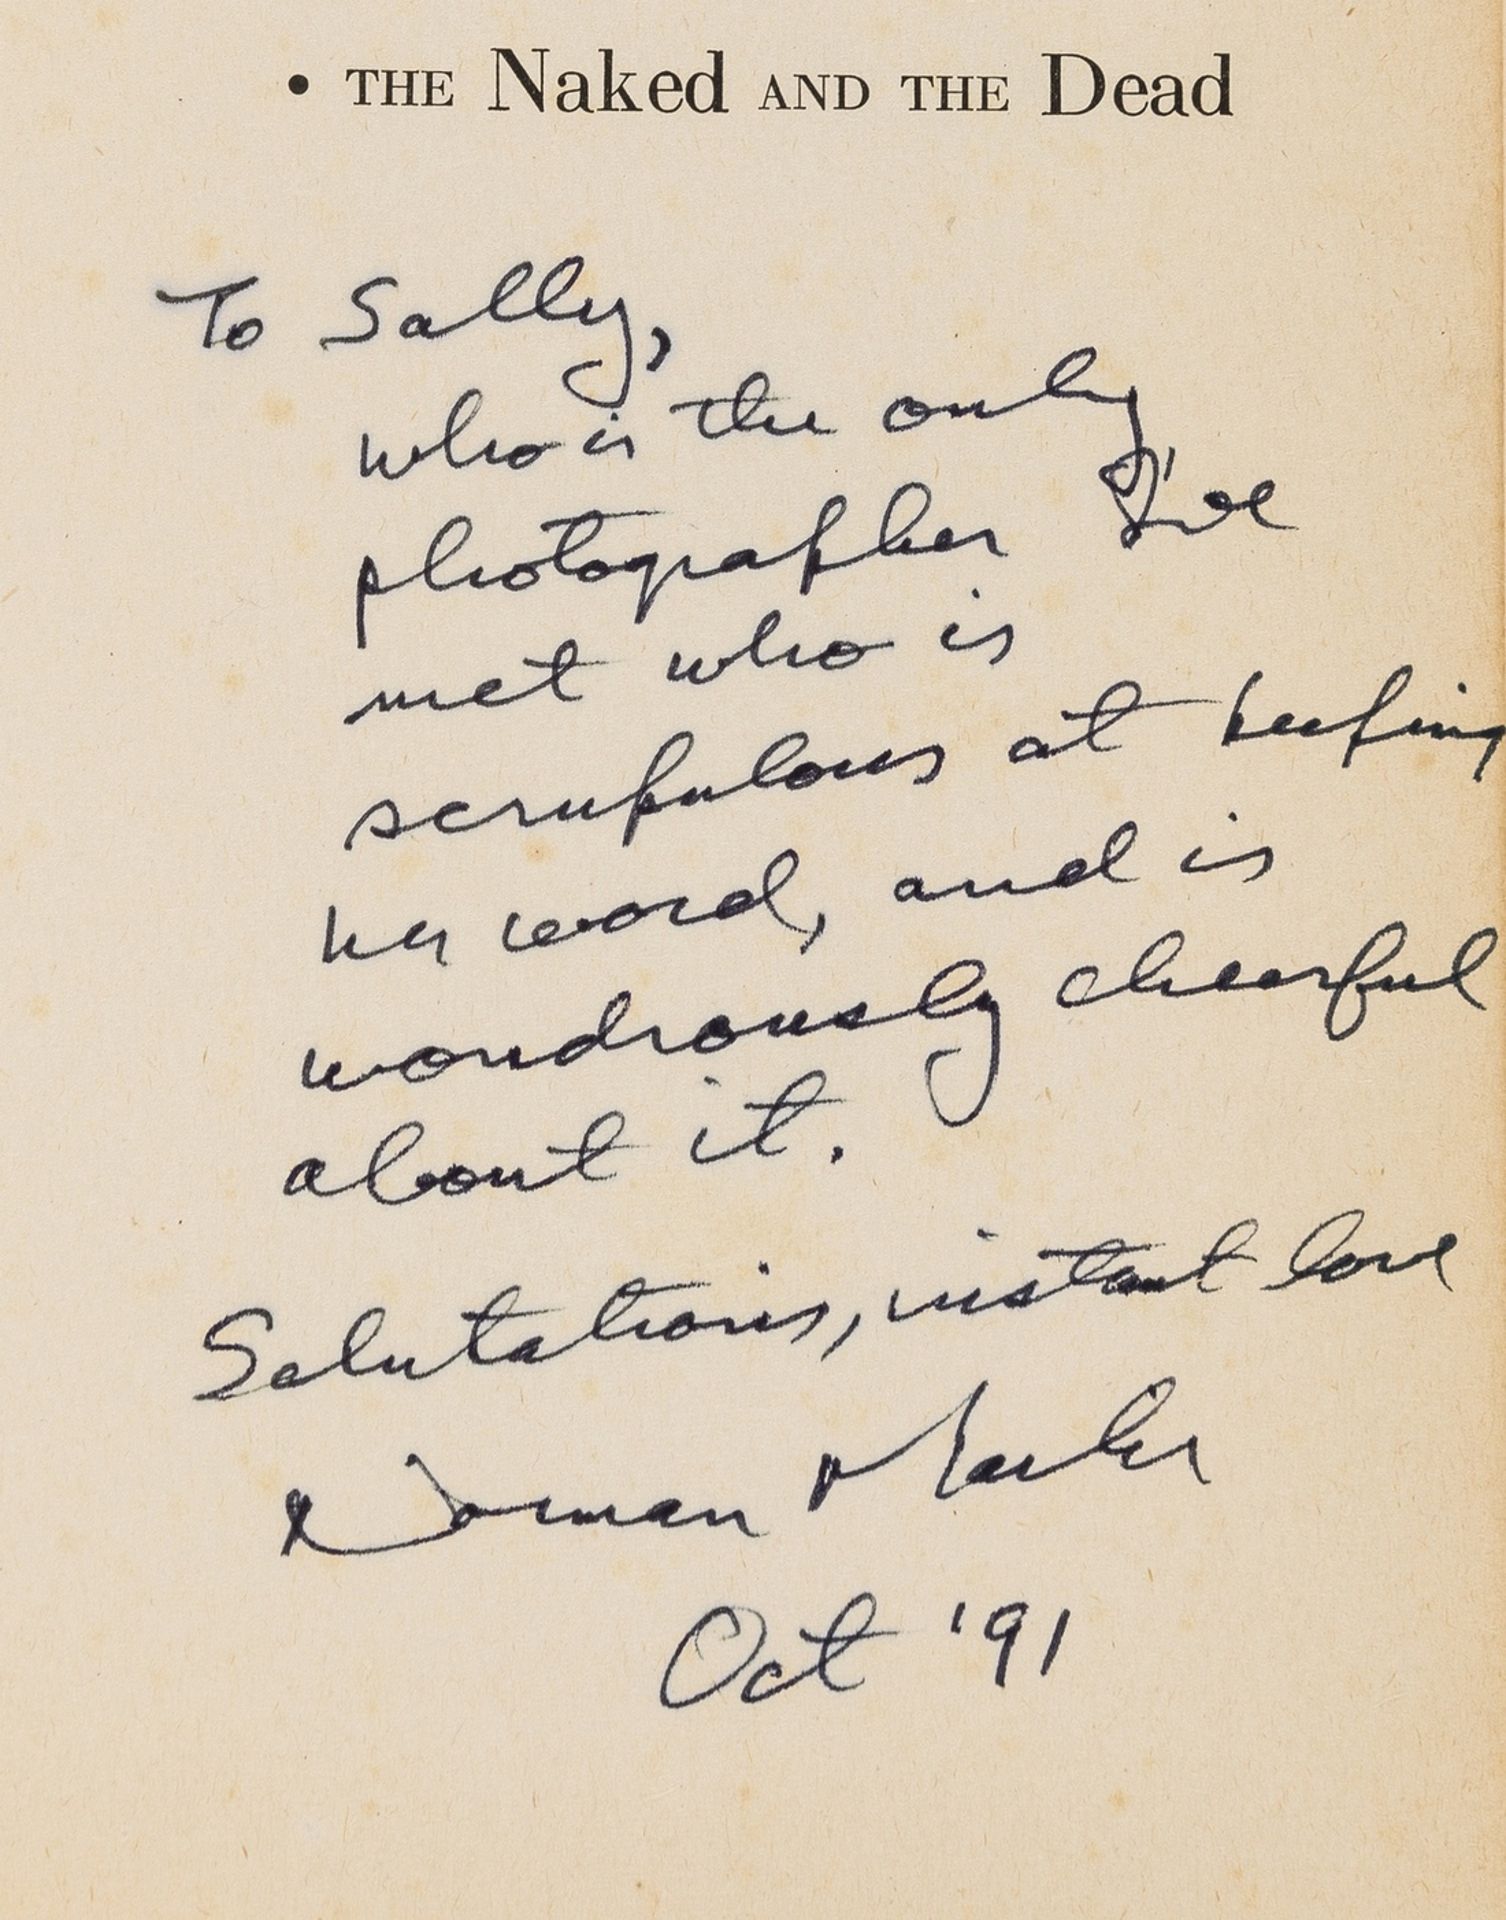 • THE Naked AND THE Dead
To Sally,
who is the only
photographer I've
met who is
scrupulous at keeping
her word, and is
wondrously cheerful
about it.
Salutations, instant love
Norman Mailer
Oct '91